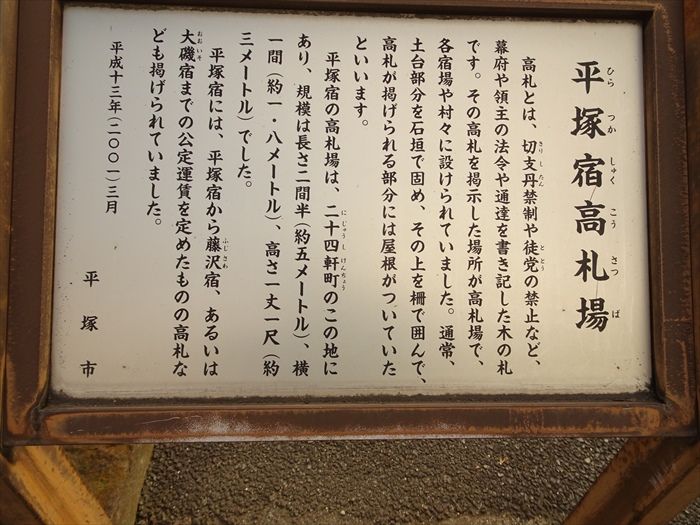 平塚宿高札場
ひらつかしゅくこうさつば
高札とは、切支丹禁制や徒党の禁止など、
きりしたん
ととう
幕府や領主の法令や通達を書き記した木の札
です。その高札を掲示した場所が高札場で、
各宿場や村々に設けられていました。通常、
土台部分を石垣で固め、その上を柵で囲んで、
高札が掲げられる部分には屋根がついていた
といいます。
平塚宿の高札場は、二十四軒町のこの地に
にじゅうしけんちょう
あり、規模は長さ二間半（約五メートル）、横
一間（約一・八メートル）、高さ一丈一尺（約
三メートル）でした。
平塚宿には、平塚宿から藤沢宿、あるいは
ふじさわ
大磯宿までの公定運賃を定めたものの高札な
おおいそ
ども掲げられていました。
平成十三年（二〇〇一）三月
平塚市